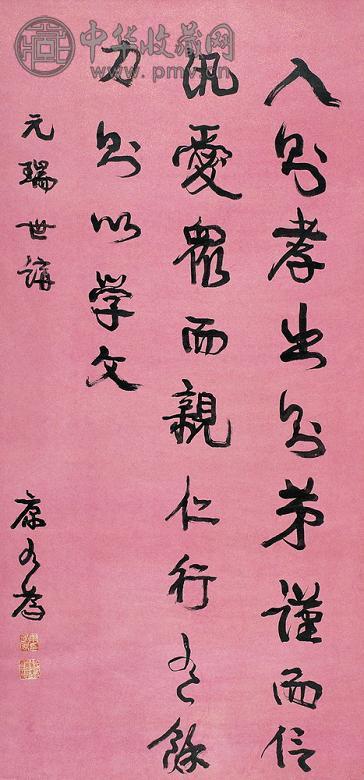 入则孝出则弟谨而信
汎愛眾而親仁行有餘
力则以学文
元瑞世講
康有為
中华收藏网
www.pmv.cn